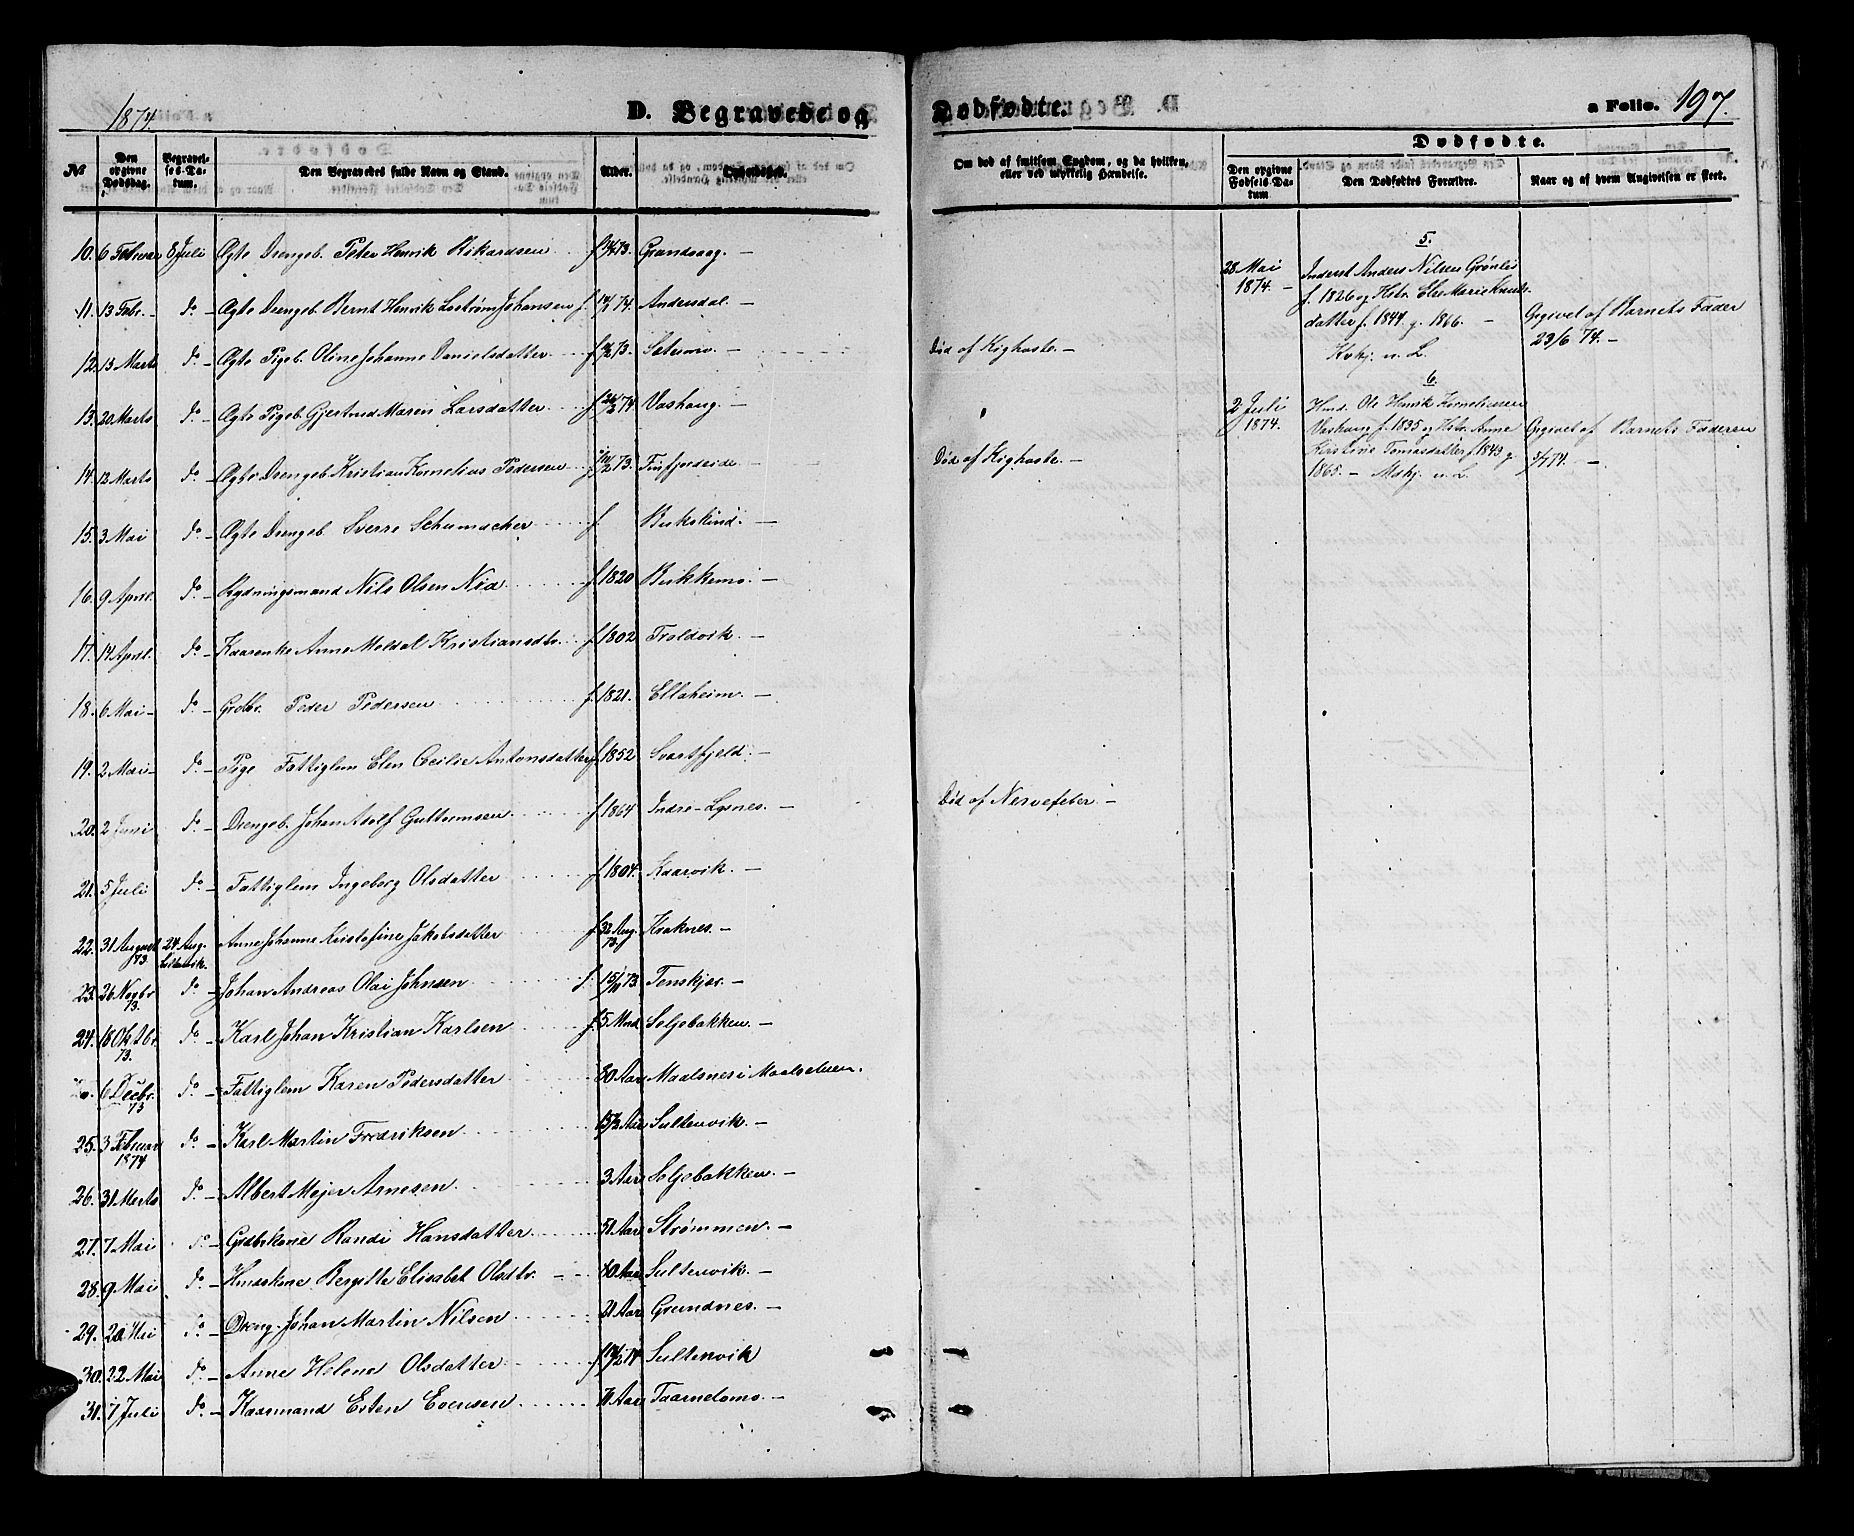 1874.
D. Begravede og
Dødfødte.
a Folio. 197.
№
Den opgivne Dødsdag.
Begravelses-Datum.
Den Begravedes fulde Navn og Stand.
Alder.
Opholdssted.
Om død af smitsom Sygdom, og da hvilken, eller ved ulykkelig Hændelse.
Dødfødte.
Den opgivne Fødsels-Datum
Den Dødfødtes Forældre.
Naar og af hvem Angivelsen er skeet.
10. 6 Februar 8 Juli Ægte Drengeb. Peter Henrik Rikardsen f. 73. Grandvaag. —
11. 13 Febr. — do — Ægte Drengeb. Bernt Henrik Johansen f. 74. Andersdal. —
12. 13 Marts do — Ægte Pigeb. Oline Johanne Danielsdatter f. 73. — Død af Kighoste. —
13. 20 Marts do — Ægte Pigeb. Gjertrud Maren Larsdatter f. 74 Vashaug. —
14. 12 Marts do — Ægte Drengeb. Kristian Kornelius Pedersen 73. Finfjordeide — Død af Kighoste. —
15. 3 Mai do — Ægte Drengeb. Sverre Schumacher f. —
16. 9 April. do — Rydningsmand Nils Olsen Nia f. 1820 Birkkemo. —
17. 14 April. do — Kaarenke Anne Meldal Kristiansdtr. f. 1802 Troldvik. —
18. 6 Mai — do — Grdbr. Peder Pedersen f. 1821. Elleheim. —
19. 2 Mai — do — Pige Fattiglem Elen Cecilie Antonsdatter f. 1852 Svartfjeld. —
20. 2 Juni do — Drengeb. Johan Adolf Guttormsen f. 1864 Indre-Lysnes. — Død af Nervefeber —
21. 5 Juli do — Fattiglem Ingeborg Olsdatter f. 1804. Kaarvik. —
22. 31 August 73. 24 Aug. Anne Johanne Kristofine Jakobsdatter f. Aug. 73. Kraknes. —
23. 26 Novbr. 73. do — Johan Andreas Olai Johnsen f. 15/10 73. Tenskjær. —
24. 18 Oktbr. 73. do — Karl Johan Kristian Karlsen f. 5 Mnd. Seljebakken. —
6 Decbr. 73 do — Fattiglem Karen Pedersdatter 80 Aar Maalsnes i Maalselven.
25. 3 Februar 1874 do — Karl Martin Fredriksen Aar Sultenvik. —
26. 31 Marts do — Albert Mejer Arnesen 3 Aar Seljebakken. —
27. 7 Mai do — Grdbrskone Randi Hansdatter 51 Aar Strømmen. —
28. 9 Mai do — Hmdskone Bergitte Elisabet Olsdtr. — 80 Aar Sultenvik. —
29. 20 Mai do — Dreng. Johan Martin Nilsen 21 Aar Grundnes. —
30. 22 Mai do — Anne Helene Olsdatter f. 74 Sultenvik
31. 7 Juli do — Kaarmand Esten Evensen 71 Aar Taarnelomo. —
5.
28 Mai 1874. —
Inderst Anders Nilsen Grønlis
f. 1826 og Hstr. Else Marie Knuds-
datter f. 1844 g. 1866. —
Angivet af Barnets Fader
23/6 74. —
6.
2 Juli 1874.
Hmd. Ole Henrik Korneliussen
Vashaug f. 1835 og Hstr. Anne
Kirstine Tomasdatter f. 1843 g.
1865. —
Angivet af Barnets Faderen
5/7 74. —